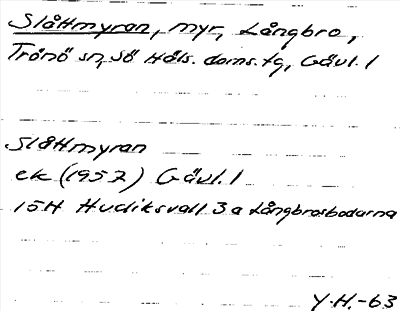 Slåttmyran, myr, Långbro,
Trönö sn, Sö Häls. doms.tg, Gävl. l
Slåttmyran
ek (1957) Gävl. l
15H Hudiksvall 3 a Långbrosbodarna
Y.H.-63